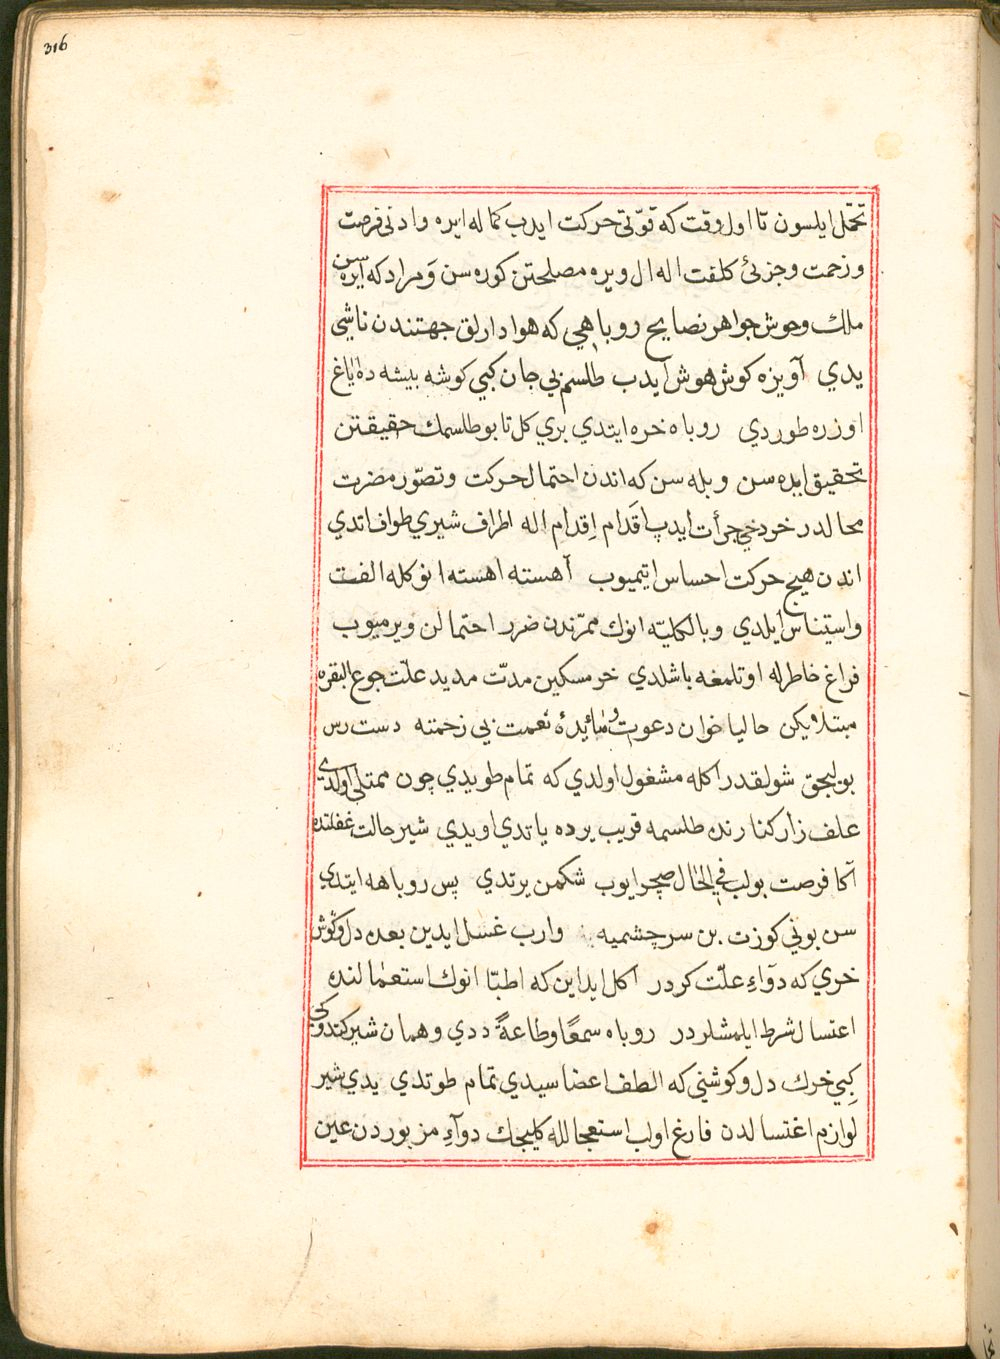 316
تحمّل ايلسون تا اول وقت كه قوّتى حركت ايدب كماله ايره و ادنى فرصت
و زحمت و جزئى كلفت اله ال ويره مصلحتن كوره سن وَ مراد كه ايره سن
ملك وحوش جواهر نصايح روباهي كه هوادارلق جهتندن ناشي
يدي آويزه كوش هوش ايدب طلسم بي جان كبي كوشه بيشه ده اياغ
اوزره طوردي روباه خره ايتدي بري كل تا بو طلسمك حقيقتن
تحقيق ايده سن و بله سن كه اندن احتمال حركت و تصوّر مضرت
محالدر خر دخي جرأت ايدب اَقدام اِقدام اله اطراف شيري طواف اتدي
اندن هيج حركت احساس ايتميوب آهسته اهسته انوكله الفت
و استيناس ايلدي و بالكليّه انوك ممرّندن ضرر احتمالن ويرميوب
فراغ خاطرله اوتلمغه باشلدي خر مسكين مدّت مديد علّت جوع البقره
مبتلا ايكن حاليا خوان دعوت و مائدهٔ نعمت بي زحمته دست رس
بوليجق شولقدر اكله مشغول اولدي كه تمام طويدي چون ممتلى اولدي
علف زار كنارنده طلسمه قريب يرده ياتدي اويدي شير حالت غفلتده
آكا فرصت بولب في الحال صچرايوب شكمن يرتدي پس روباهه ايتدي
سن بوني كوزت بن سر چشميه وارب غسل ايدين بعده دل و كوش
خري كه دوآءِ علّت كردر اكل ايداين كه اطبّا انوك استعمالنده
اغتسال شرط ايلمشلردر روباه سمعًا و طاعةً ددي و همان شير كتدوكي
كِبي خرك دل و كوشني كه الطف اعضا سيدي تمام طوتدي يدي شير
لوازم اغتسالدن فارغ اولب استعجالله كليجك دوآءِ مزبوردن عين